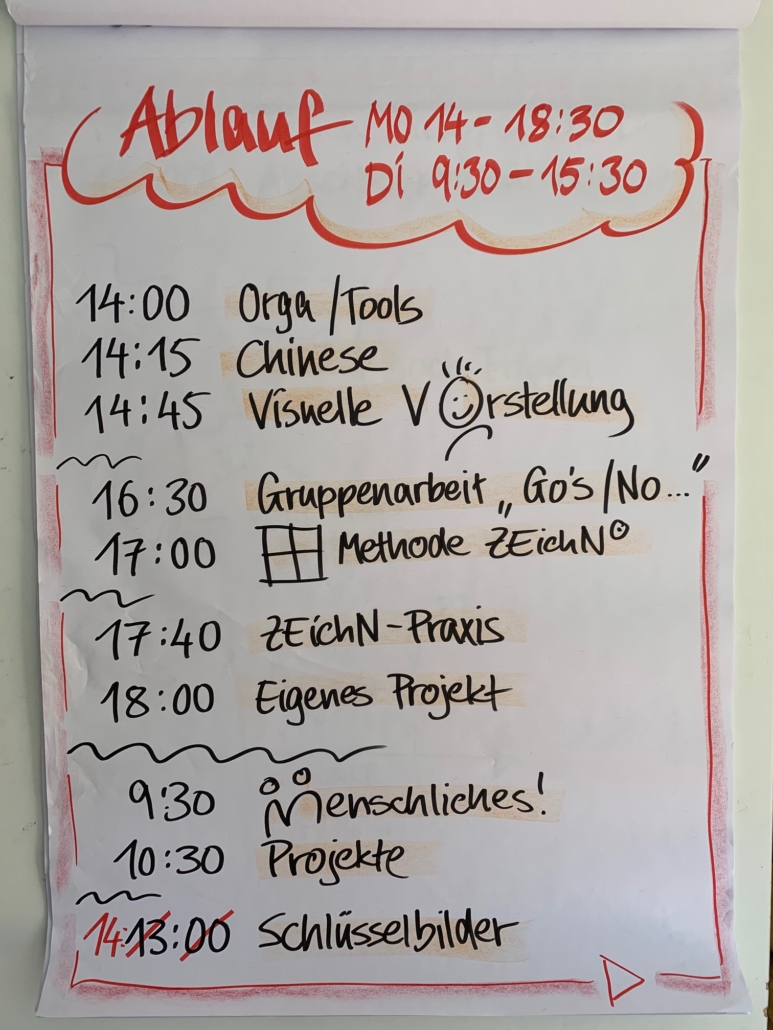 Ablauf MO 14 - 18:30
Di 9:30 - 15:30
14:00 Orga/Tools
14:15 Chinese
14:45 Visuelle Vorstellung
16:30 Gruppenarbeit „Go's/No..."
17:00 Methode ZEichN
17:40 ZEichN-Praxis
18:00 Eigenes Projekt
9:30 Menschliches!
10:30 Projekte
14: 13:00 Schlüsselbilder